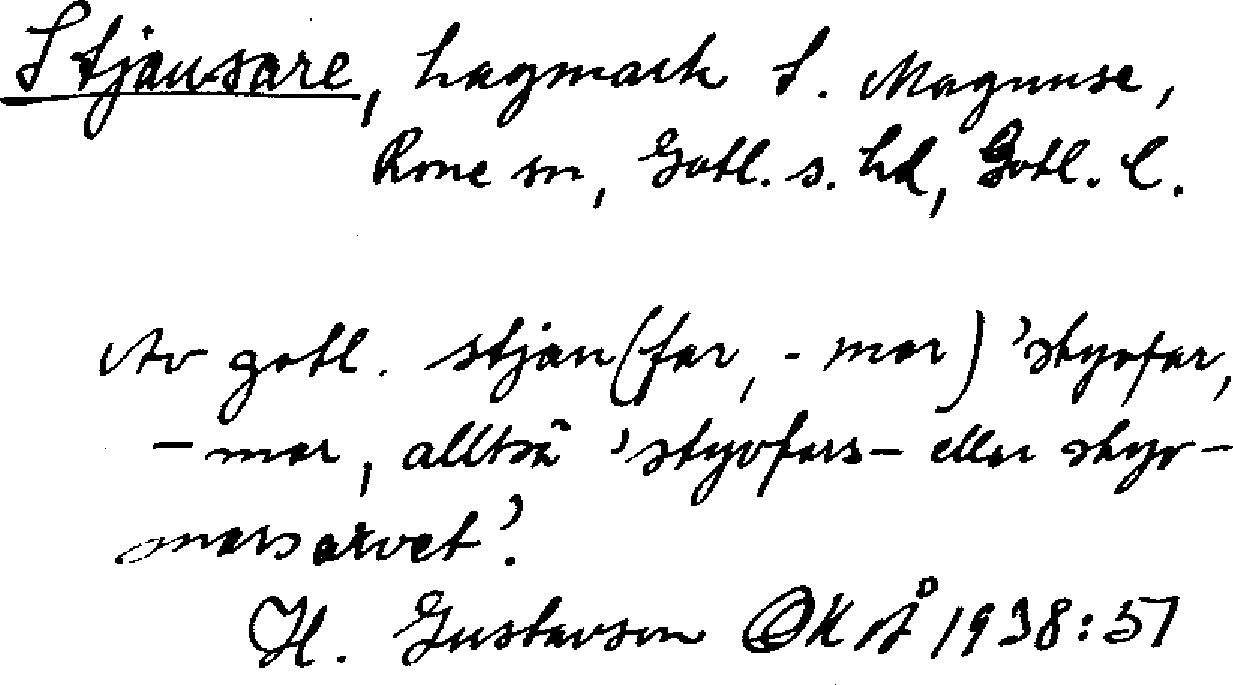 Stjausare, hagmark t. Magnuse,
Rone sn, Gotl. s. hd, Gotl. l.
Av gotl. stjau(far, -mor) 'styvfar,
-mor, alltså 'styvfars- eller styv-
morsarvet'.
H. Gustavson OKÅ 1938:57